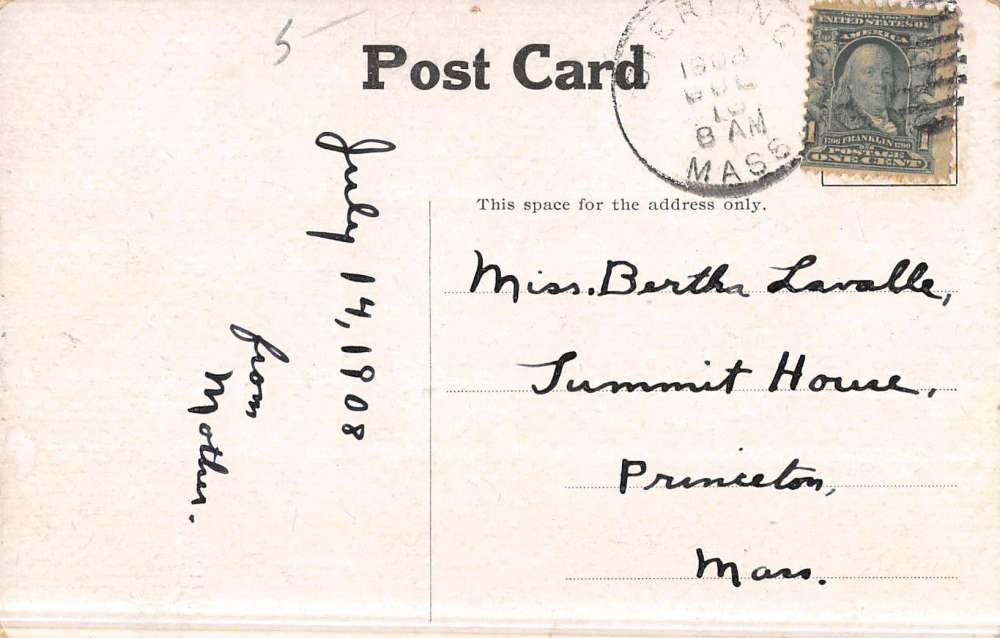 5
Post Card
STERLING
1908
JUL
15
8 AM
MASS
SERIES 1902
UNITED STATES OF
AMERICA
1 1
1706 FRANKLIN 1790
POSTAGE
ONE CENT
This space for the address only.
July 14, 1908
from
Mother.
Miss. Bertha Lavalle,
Summit House,
Princeton,
Mass.